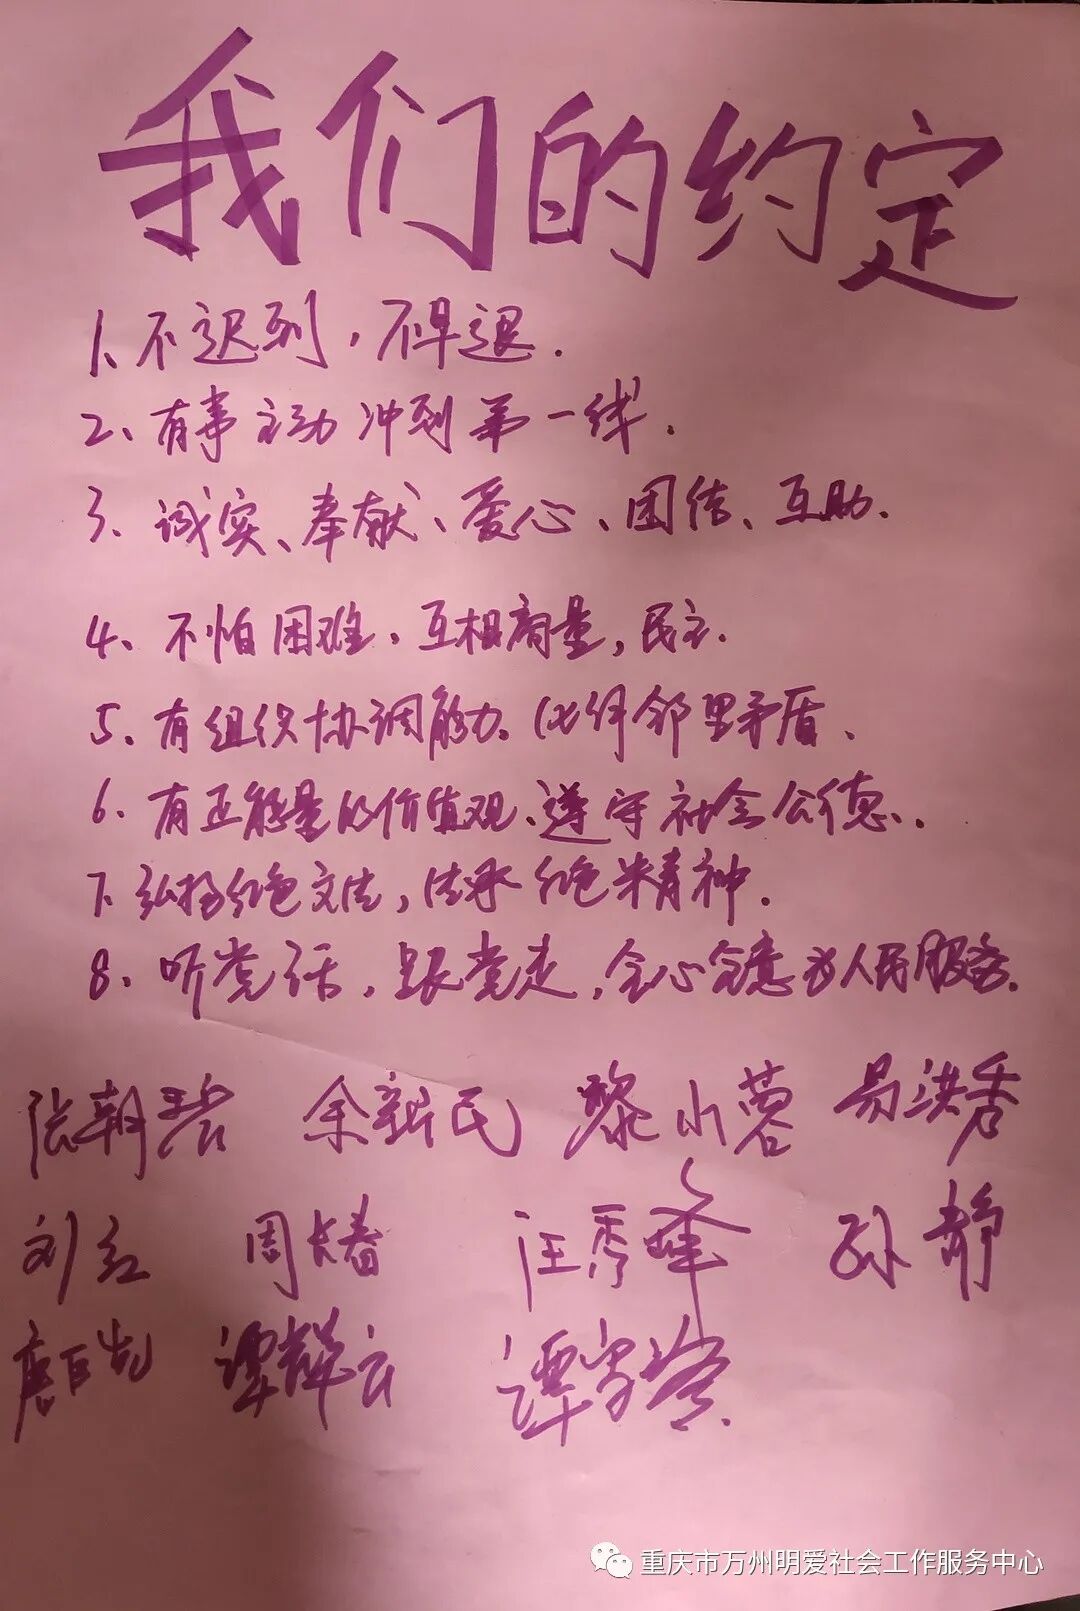 我们的约定
1、不迟到，不早退.
2、有事主动冲到第一线.
3、诚实、奉献、爱心、团结、互助.
4、不怕困难，互相商量，民主.
5、有组织协调能力、化解邻里矛盾、
6、有正能量的价值观、遵守社会公德.
7、弘扬红色文化，传承红色精神.
8、听党话，跟党走，全心全意为人民服务.
张朝碧 余新民 黎小蓉 易洪秀
刘红 周长春 汪秀峰 孙静
谭辉云 谭
重庆市万州明爱社会工作服务中心